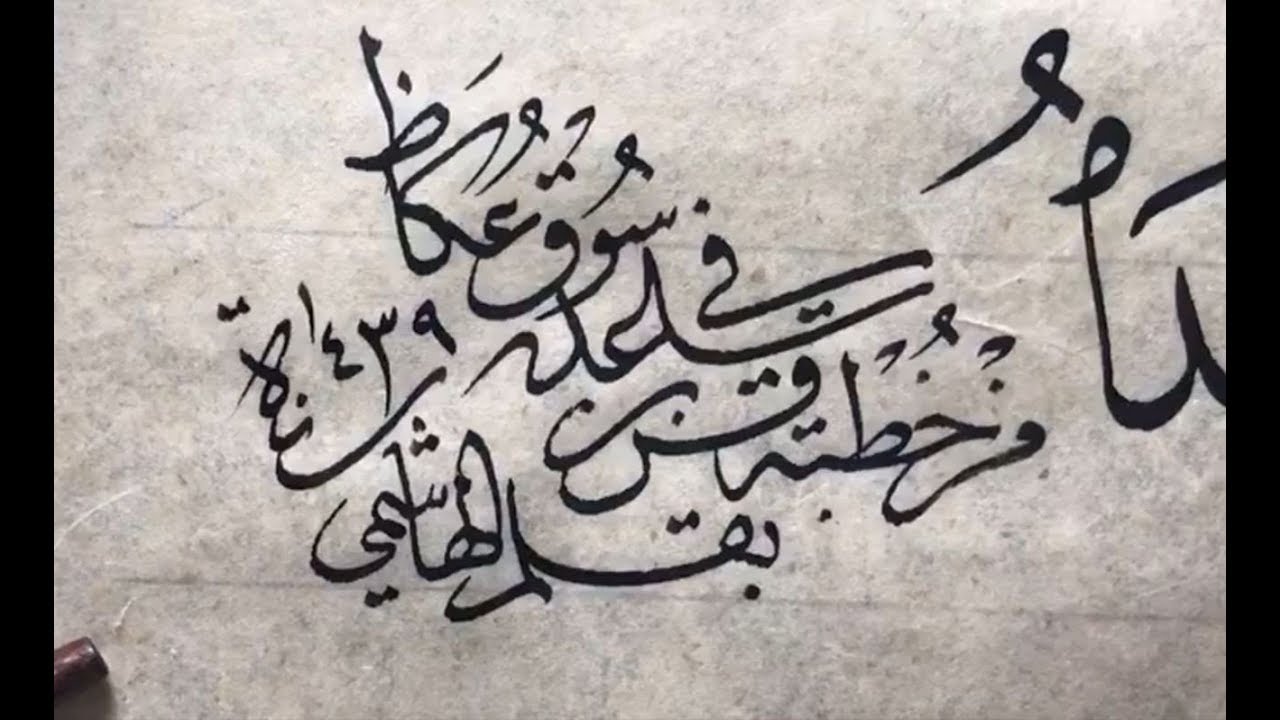 من خُطبة قس بن ساعدة
في سُوق عُكَاظ
بقلم الهاشمي سنة ١٤٣٩